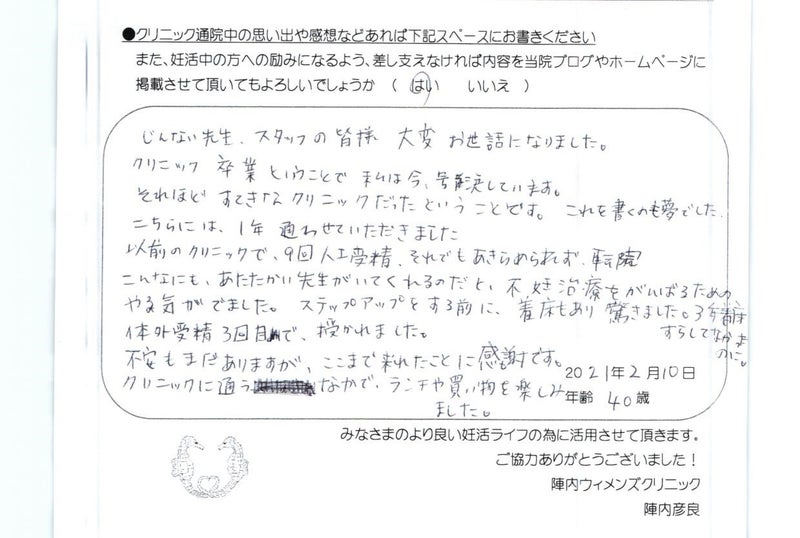 ●クリニック通院中の思い出や感想などあれば下記スペースにお書きください
また、妊活中の方への励みになるよう、差し支えなければ内容を当院ブログやホームページに
掲載させて頂いてもよろしいでしょうか （ はい いいえ ）
じんない先生、スタッフの皆様 大変 お世話になりました。
クリニック 卒業 ということで 私は今、号泣しています。
それほど すてきな クリニックだった ということです。 これを書くのも夢でした。
こちらには、1年 通わせていただきました
以前のクリニックで、9回 人工受精、それでもあきらめられず、転院
こんなにも、あたたかい先生がいてくれるのだと、不妊治療をがんばるための
やる気がでました。 ステップアップをする前に、着床もあり 驚きました。3年着床
すらしてなかった
のに。
体外受精 3回目で、授かれました。
不安もまだありますが、ここまで来れたことに感謝です。
クリニックに通う なかで、ランチや買い物を楽しみ
ました。
2021年2月10日
年齢 40歳
みなさまのより良い妊活ライフの為に活用させて頂きます。
ご協力ありがとうございました！
陣内ウィメンズクリニック
陣内彦良